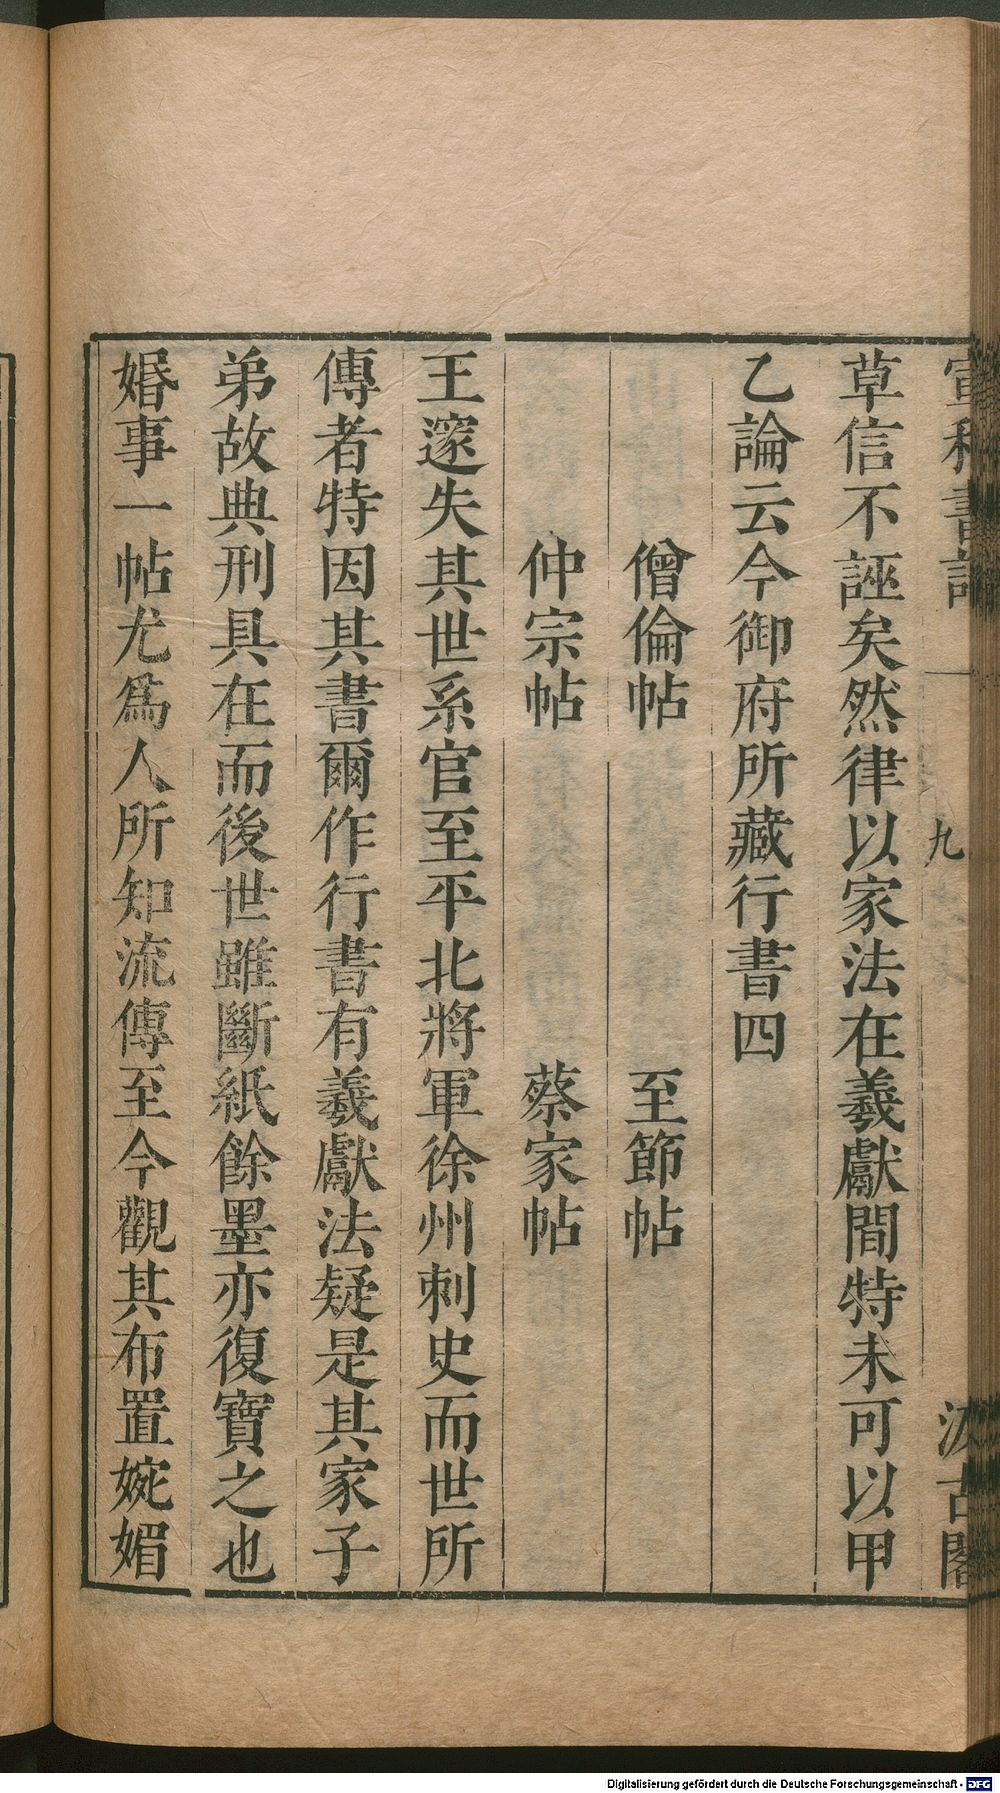 草信不誣矣然律以家法在羲獻間特未可以甲
乙論云今御府所藏行書四
僧倫帖　至節帖
仲宗帖　蔡家帖
王邃失其世系官至平北將軍徐州刺史而世所
傳者特因其書爾作行書有羲獻法疑是其家子
弟故典刑具在而後世雖斷紙餘墨亦復寶之也
婚事一帖尤爲人所知流傳至今觀其布置婉媚
宣和書譜 九 汲古閣
Digitalisierung gefördert durch die Deutsche Forschungsgemeinschaft - DFG